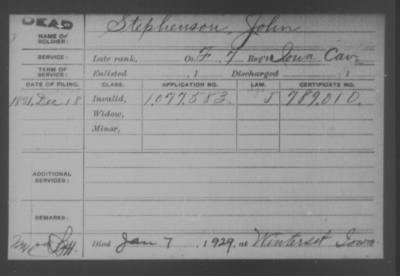 DEAD
NAME OF SOLDIER: Stephenson, John
SERVICE: Late rank, Co. F, 7 Reg't Iowa Cav.
TERM OF SERVICE: Enlisted , 1 Discharged , 1
DATE OF FILING. CLASS. APPLICATION NO. LAW. CERTIFICATE NO.
1891, Dec 18 Invalid, 1,077,583. 789,010.
Widow,
Minor,
ADDITIONAL SERVICES:
REMARKS:
Died Jan 7, 1929, at Winterset Iowa